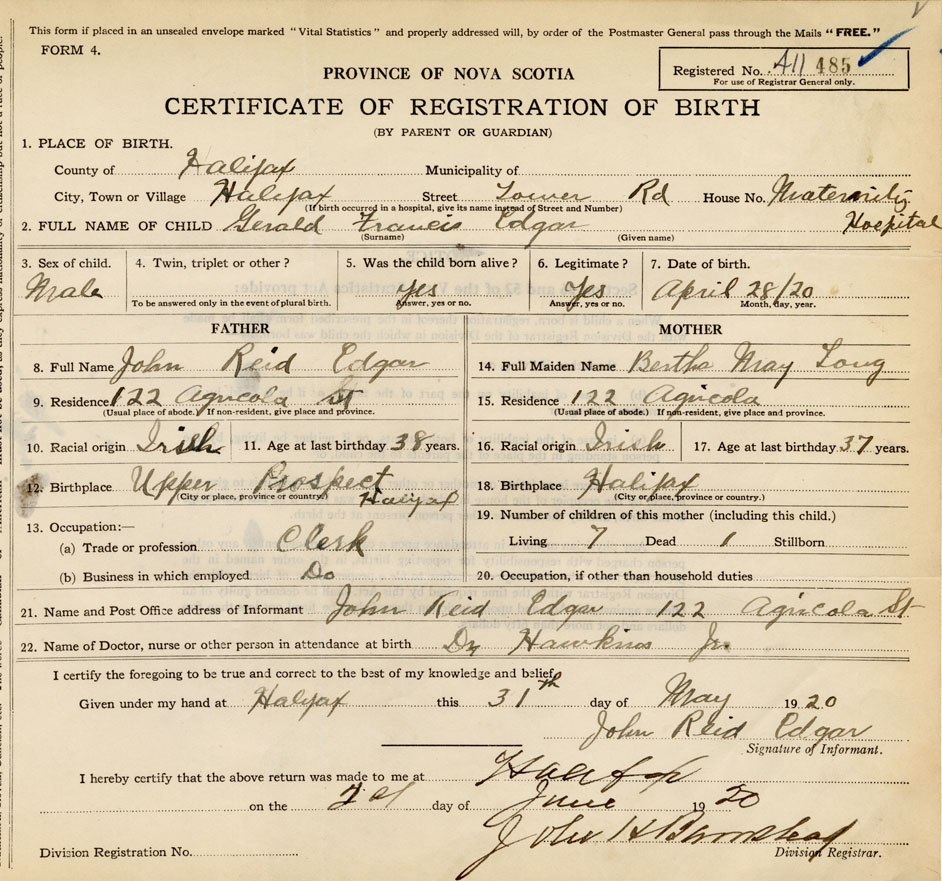 This form if placed in an unsealed envelope marked "Vital Statistics" and properly addressed will, by order of the Postmaster General pass through the Mails "FREE."
FORM 4.
Registered No. 411 485
For use of Registrar General only.
PROVINCE OF NOVA SCOTIA
CERTIFICATE OF REGISTRATION OF BIRTH
(BY PARENT OR GUARDIAN)
1. PLACE OF BIRTH.
County of Halifax Municipality of
City, Town or Village Halifax Street Tower Rd House No. Maternity
(If birth occurred in a hospital, give its name instead of Street and Number)
Hospital
2. FULL NAME OF CHILD Gerald Francis Edgar
(Surname) (Given name)
3. Sex of child. 4. Twin, triplet or other? 5. Was the child born alive? 6. Legitimate? 7. Date of birth.
Male Yes Yes April 28/20
To be answered only in the event of plural birth. Answer, yes or no. Answer, yes or no. Month, day, year.
FATHER MOTHER
8. Full Name John Reid Edgar 14. Full Maiden Name Bertha May Long
9. Residence 122 Agricola St 15. Residence 122 Agricola
(Usual place of abode. If non-resident, give place and province. (Usual place of abode.) If non-resident, give place and province.
10. Racial origin Irish 11. Age at last birthday 38 years. 16. Racial origin Irish 17. Age at last birthday 37 years.
12. Birthplace Upper Prospect 18. Birthplace Halifax
(City or place, province or country.) Halifax (City or place, province or country.)
13. Occupation:— 19. Number of children of this mother (including this child.)
(a) Trade or profession Clerk Living 7 Dead 1 Stillborn
(b) Business in which employed Do 20. Occupation, if other than household duties
21. Name and Post Office address of Informant John Reid Edgar 122 Agricola St
22. Name of Doctor, nurse or other person in attendance at birth Dr Hawkins Jr.
I certify the foregoing to be true and correct to the best of my knowledge and belief.
Given under my hand at Halifax this 31th day of May 1920
John Reid Edgar
Signature of Informant.
I hereby certify that the above return was made to me at Halifax
on the day of June 1920
John
Division Registration No. Division Registrar.